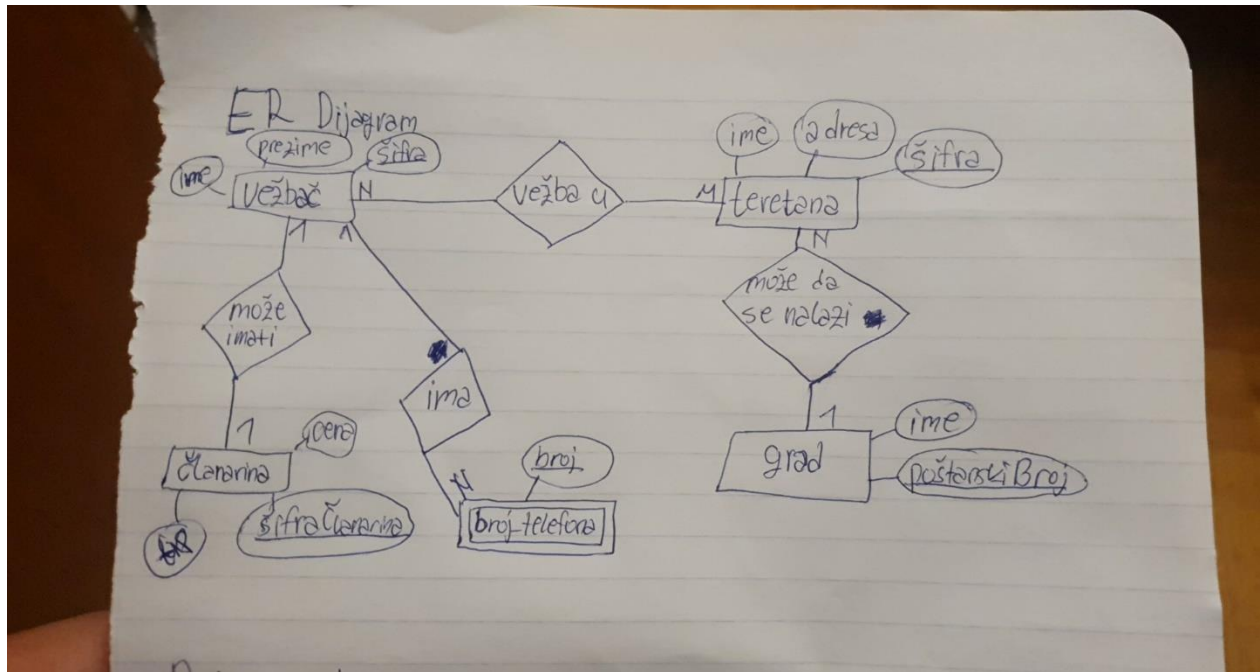 ER Dijagram
prezime
šifra
ime
vežbač
N
vežba u
M
ime
adresa
šifra
teretana
1
1
N
može
imati
može da
se nalazi
ima
1
1
N
cena
članarina
šifraČlanarina
broj
broj_telefona
grad
ime
poštanskiBroj